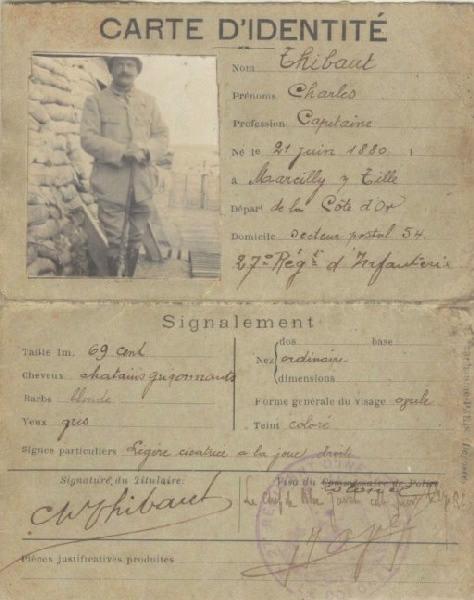 CARTE D'IDENTITÉ
Nom Thibaut
Prénoms Charles
Profession Capitaine
Né le 21 juin 1880
à Marcilly s/ Tille
Départ de la Côte d'Or
Domicile Secteur postal 54
27e Régt d'Infanterie
Signalement
Taille 1m. 69 cent
Cheveux chatains grisonnants
Barbe blonde
Yeux gris
Nez
dos base
ordinaire
dimensions
Forme générale du visage ovale
Teint coloré
Signes particuliers Legère cicatrice a la joue droite
Signature du Titulaire:
Visa du Commissaire de Police
Le Chef de
Ch Thibaut
Pièces justificatives produites